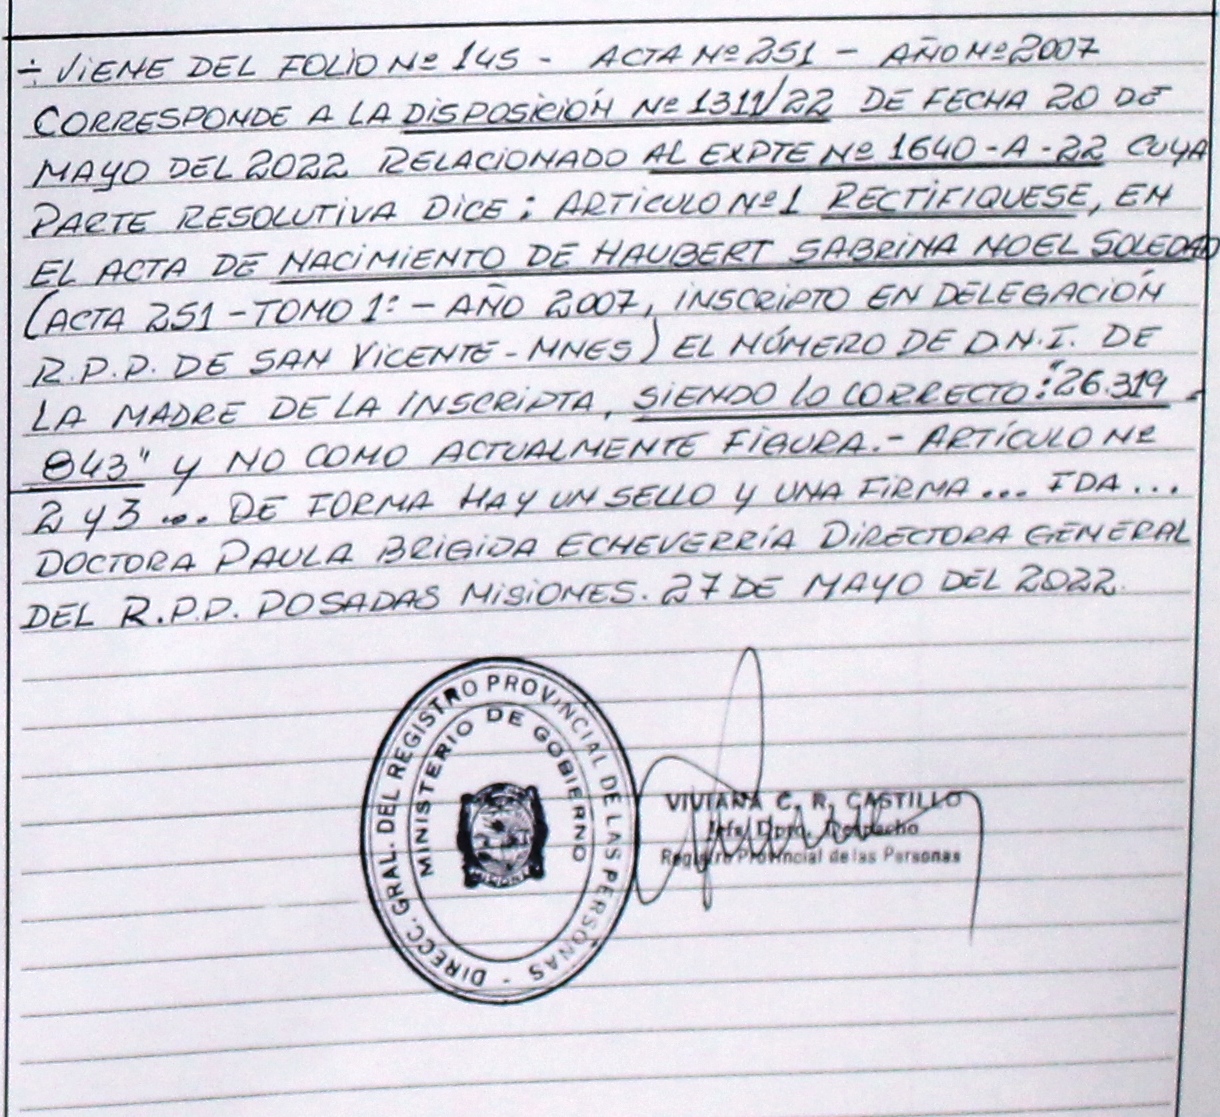 ÷ VIENE DEL FOLIO Nº 145 - ACTA Nº 251 - AÑO Nº 2007
CORRESPONDE A LA DISPOSICIÓN Nº 1311/22 DE FECHA 20 DE
MAYO DEL 2022 RELACIONADO AL EXPTE Nº 1640-A-22 CUYA
PARTE RESOLUTIVA DICE: ARTICULO Nº 1 RECTIFIQUESE, EN
EL ACTA DE NACIMIENTO DE HAUBERT SABRINA NOEL SOLEDAD
(ACTA 251 - TOMO 1: - AÑO 2007, INSCRIPTO EN DELEGACIÓN
R.P.P. DE SAN VICENTE - MNES) EL NÚMERO DE D.N.I. DE
LA MADRE DE LA INSCRIPTA, SIENDO LO CORRECTO: "26.319.
843" Y NO COMO ACTUALMENTE FIGURA.- ARTÍCULO Nº
2 y 3 ... DE FORMA HAY UN SELLO Y UNA FIRMA ... FDA ...
DOCTORA PAULA BRIGIDA ECHEVERRÍA DIRECTORA GENERAL
DEL R.P.P. POSADAS MISIONES. 27 DE MAYO DEL 2022.
DIRECC. GRAL. DEL REGISTRO PROVINCIAL DE LAS PERSONAS -
MINISTERIO DE GOBIERNO
MISIONES
VIVIANA C. R. CASTILLO
Jefa Dpto. Despacho
Registro Provincial de las Personas